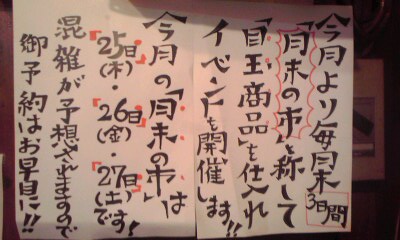 今月より毎月末3日間
「月末の市」と称して
「目玉商品」を仕入れ
イベントを開催します!!
今月の「月末の市」は
「25日(木)・26日(金)・27日(土)です!
混雑が予想されますので
御予約はお早目に!!